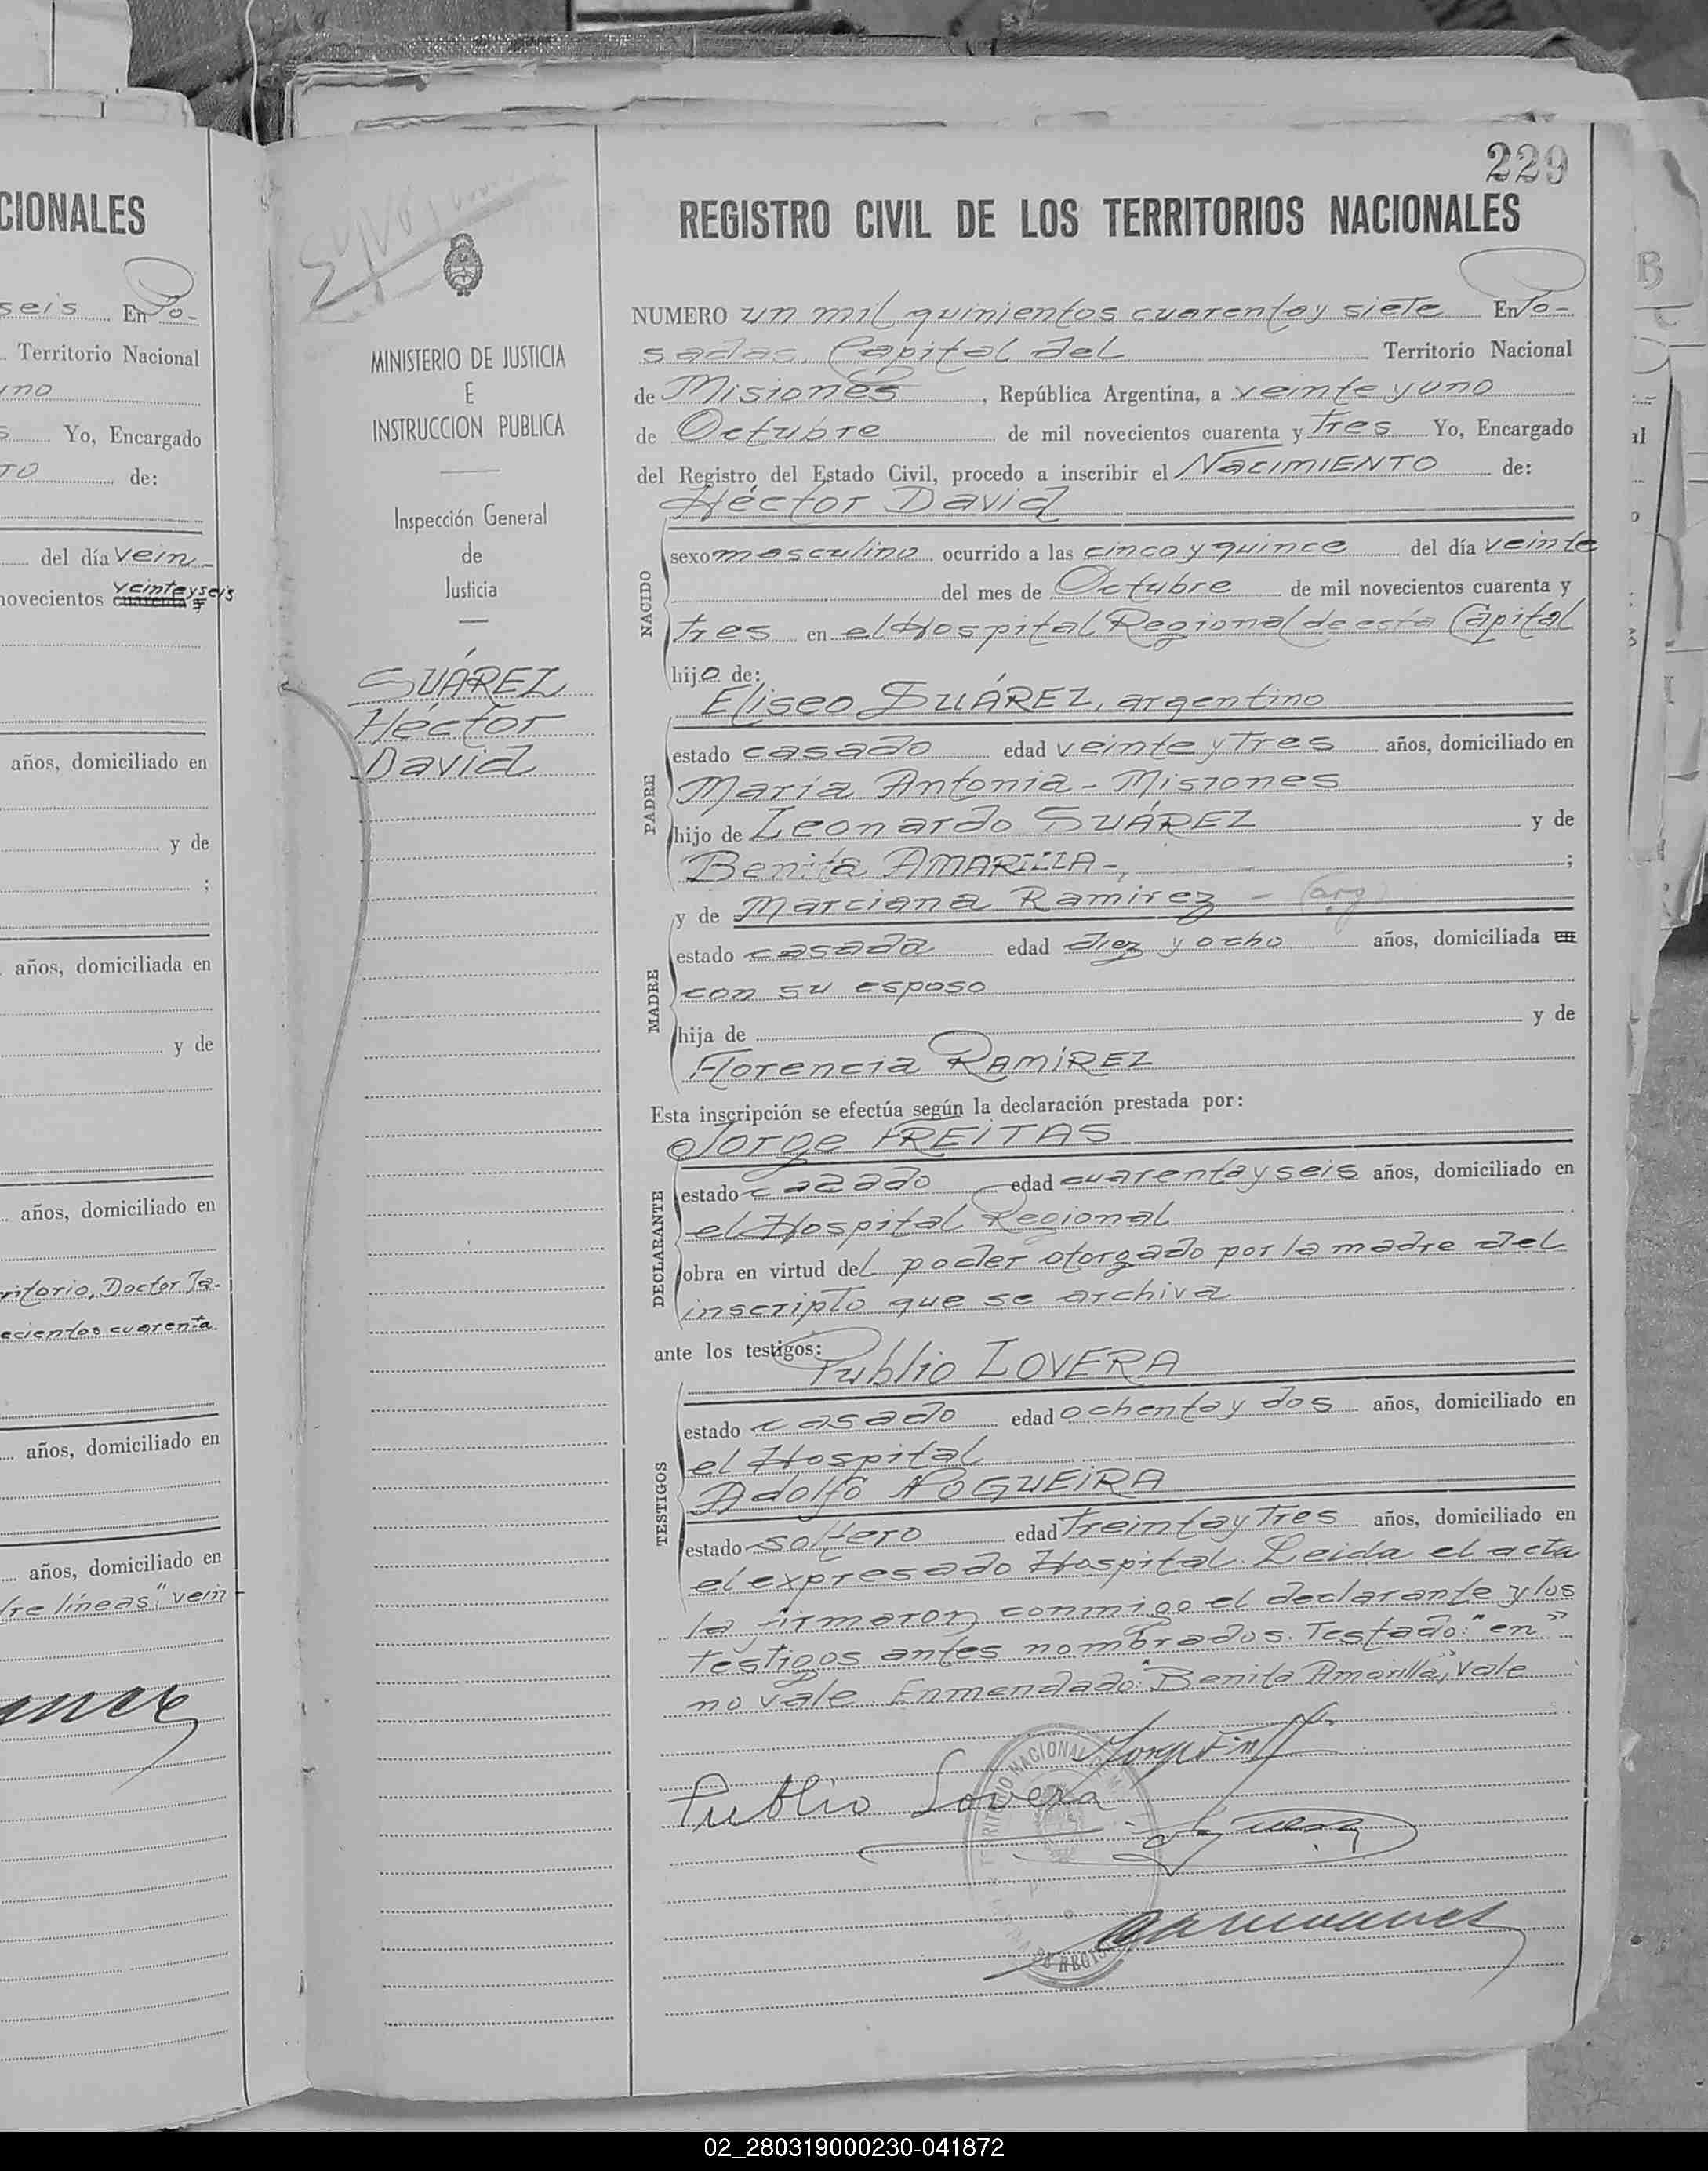 CIONALES
seis En Po-
Territorio Nacional
uno
Yo, Encargado
TO de:
del día vein-
novecientos cuarenta y veinteyseis
años, domiciliado en
y de
;
años, domiciliada en
y de
años, domiciliado en
ritorio, Doctor Ja-
ecientos cuarenta
años, domiciliado en
años, domiciliado en
tre líneas: "vein
MINISTERIO DE JUSTICIA
E
INSTRUCCION PUBLICA
Inspección General
de
Justicia
SUÁREZ
Héctor
David
229
REGISTRO CIVIL DE LOS TERRITORIOS NACIONALES
NUMERO un mil quinientos cuarenta y siete En Po-
sadas, Capital del Territorio Nacional
de Misiones, República Argentina, a veinte y uno
de Octubre de mil novecientos cuarenta y Tres Yo, Encargado
del Registro del Estado Civil, procedo a inscribir el NACIMIENTO de:
Héctor David
NACIDO
sexo masculino ocurrido a las cinco y quince del día veinte
del mes de Octubre de mil novecientos cuarenta y
tres en el Hospital Regional de esta Capital
hijo de:
Eliseo SUÁREZ, argentino
PADRE
estado casado edad veinte y Tres años, domiciliado en
María Antonia - Misiones
hijo de Leonardo SUÁREZ y de
Benita AMARILLA-, ;
y de Marciana Ramirez - (arg)
MADRE
estado casada edad diez y ocho años, domiciliada en
con su esposo
hija de y de
Florencia RAMÍREZ
Esta inscripción se efectúa según la declaración prestada por:
Jorge FREITAS
DECLARANTE
estado casado edad cuarenta y seis años, domiciliado en
el Hospital Regional
obra en virtud del poder otorgado por la madre del
inscripto que se archiva
ante los testigos:
Publio LOVERA
TESTIGOS
estado casado edad ochenta y dos años, domiciliado en
el Hospital
Adolfo NOGUEIRA
estado soltero edad Treinta y Tres años, domiciliado en
el expresado Hospital. Leida el acta
la firmaron conmigo el declarante y los
testigos antes nombrados. Testado: "en"
no vale. Enmendado: "Benita Amarilla", vale
Publio Lovera
TERRITORIO NACIONAL
DE REGIS
B
02_280319000230-041872